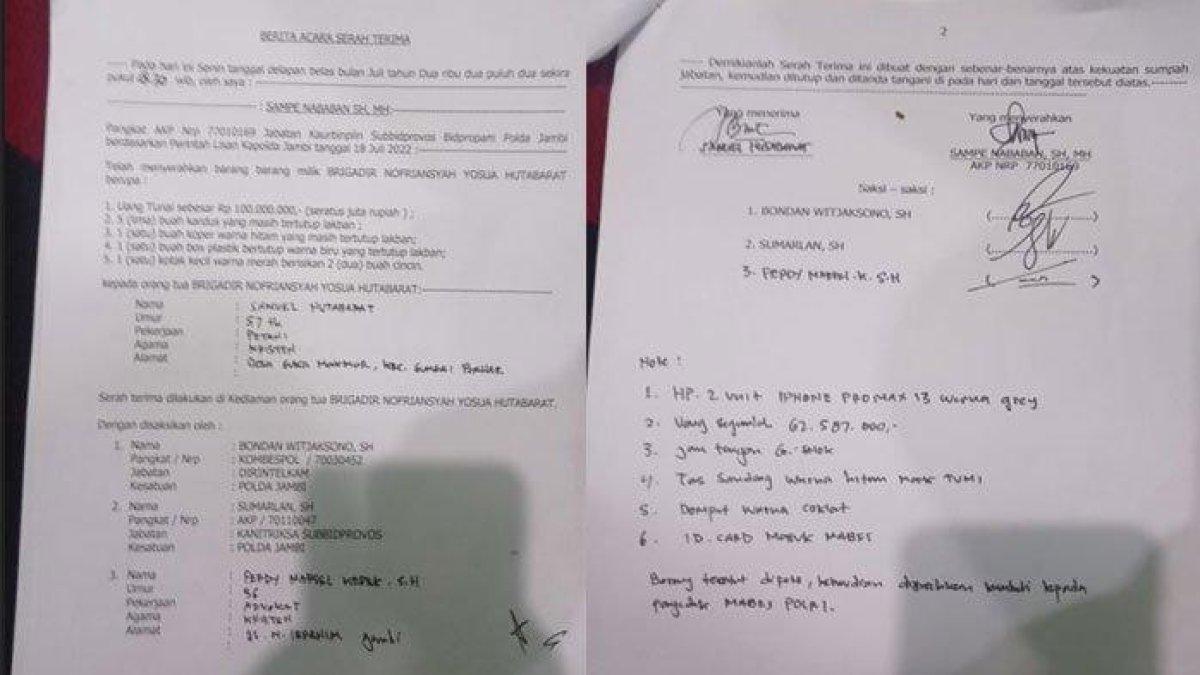 BERITA ACARA SERAH TERIMA
----- Pada hari ini Senin tanggal delapan belas bulan Juli tahun Dua ribu dua puluh dua sekira
pukul WIB, oleh saya :
: SAMPE NABABAN SH, MH:
Pangkat AKP Nrp 77010169 Jabatan Kaurbinplin Subbidprovos Bidpropam Polda Jambi
berdasarkan Perintah Lisan Kapolda Jambi tanggal 18 Juli 2022 :
Telah menyerahkan barang barang milik BRIGADIR NOFRIANSYAH YOSUA HUTABARAT
berupa :
1. Uang Tunai sebesar Rp 100.000.000,- (seratus juta rupiah ) ;
2. 5 (lima) buah kardus yang masih tertutup lakban ;
3. 1 (satu) buah koper warna hitam yang masih tertutup lakban;
4. 1 (satu) buah box plastik bertutup warna biru yang tertutup lakban;
5. 1 (satu) kotak kecil warna merah berisikan 2 (dua) buah cincin.
kepada orang tua BRIGADIR NOFRIANSYAH YOSUA HUTABARAT:
Nama : SAMUEL HUTABARAT
Umur : 57 th
Pekerjaan : PETANI
Agama : KRISTEN
Alamat : DESA SUKA MAKMUR, KEC. SUNGAI BAHAR
Serah terima dilakukan di Kediaman orang tua BRIGADIR NOFRIANSYAH YOSUA HUTABARAT.
Dengan disaksikan oleh :
1. Nama : BONDAN WITJAKSONO, SH
Pangkat / Nrp : KOMBESPOL / 70030452
Jabatan : DIRINTELKAM
Kesatuan : POLDA JAMBI
2. Nama : SUMARLAN, SH
Pangkat / Nrp : AKP / 70110047
Jabatan : KANITRIKSA SUBBIDPROVOS
Kesatuan : POLDA JAMBI
3. Nama : FERDY S.H
Umur : 36
Pekerjaan : ADVOKAT
Agama : KRISTEN
Alamat : JL. M. IBRAHIM Jambi
2
----- Demikianlah Serah Terima ini dibuat dengan sebenar-benarnya atas kekuatan sumpah
Jabatan, kemudian ditutup dan ditanda tangani di pada hari dan tanggal tersebut diatas.
Yang menerima
SAMUEL HUTABARAT
Yang menyerahkan
SAMPE NABABAN, SH, MH
AKP NRP 77010169
Saksi – saksi :
1. BONDAN WITJAKSONO, SH (....................)
2. SUMARLAN, SH (....................)
3. FERDY K. S.H ( )
Note :
1. HP. 2 Unit IPHONE PROMAX 13 warna grey
2. Uang sejumlah 62.587.000,-
3. Jam tangan G-
4. Tas Sandang warna hitam merk TUMI
5. Dompet warna coklat
6. ID. CARD MASUK MABES
Barang tersebut kemudian kembali kepada
MABES POLRI.